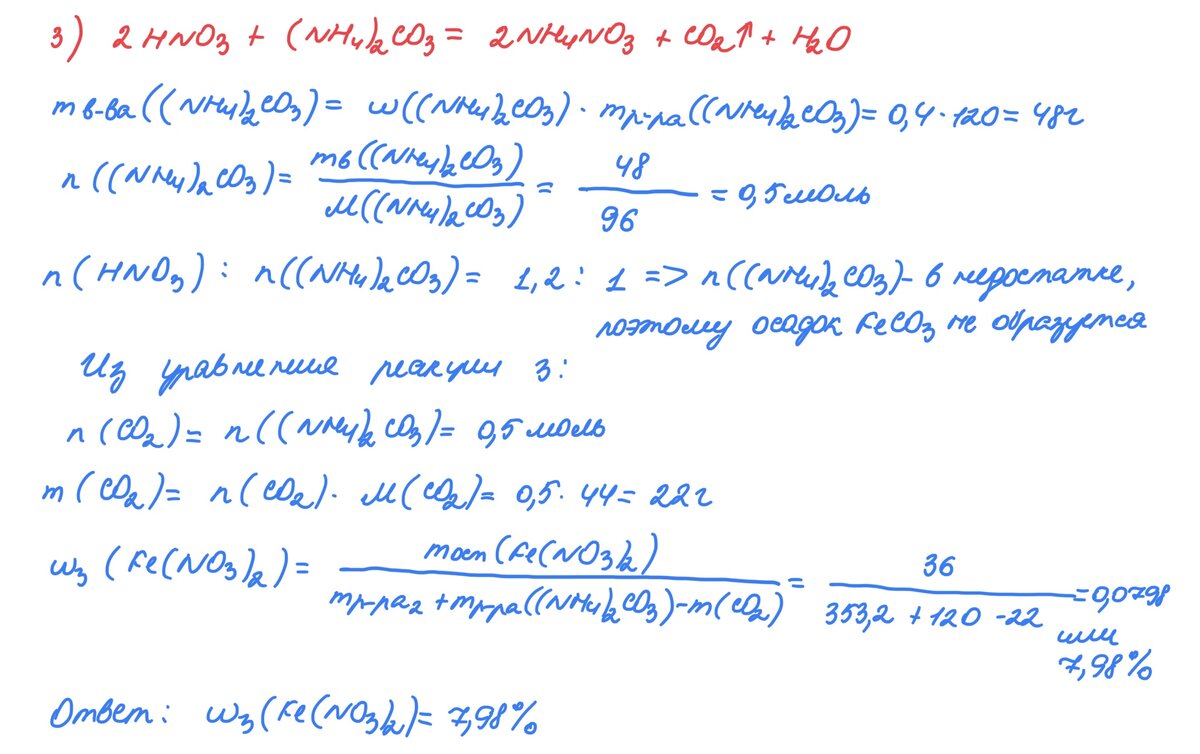 3) 2HNO3 + (NH4)2CO3 = 2NH4NO3 + CO2↑ + H2O
m в-ва((NH4)2CO3) = ω((NH4)2CO3) · mр-ра((NH4)2CO3) = 0,4 · 120 = 48г
n((NH4)2CO3) = mв((NH4)2CO3) / M((NH4)2CO3) = 48 / 96 = 0,5 моль
n(HNO3) : n((NH4)2CO3) = 1,2 : 1 => n((NH4)2CO3) - в недостатке,
поэтому осадок FeCO3 не образуется
Из уравнения реакции 3:
n(CO2) = n((NH4)2CO3) = 0,5 моль
m(CO2) = n(CO2) · M(CO2) = 0,5 · 44 = 22г
ω3(Fe(NO3)2) = mост(Fe(NO3)2) / mр-ра2 + mр-ра((NH4)2CO3) - m(CO2) = 36 / 353,2 + 120 - 22 = 0,0798
или
7,98%
Ответ: ω3(Fe(NO3)2) = 7,98%